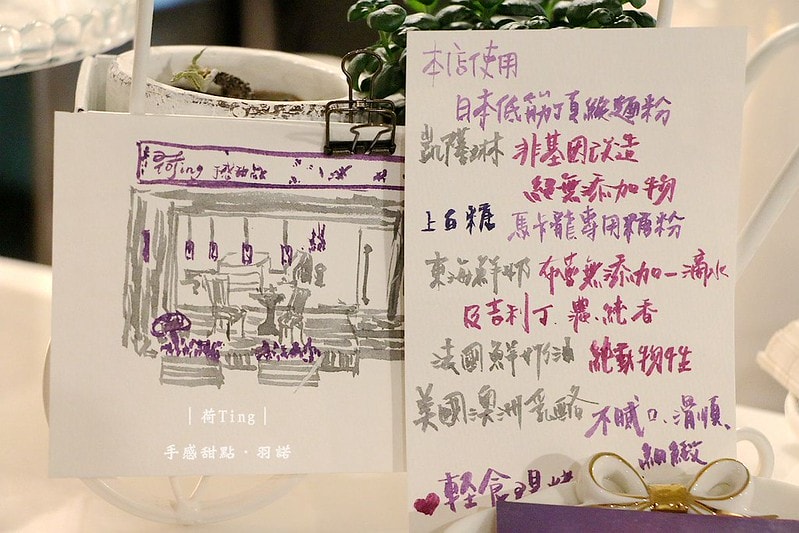 荷Ting 手感甜點
| 荷Ting |
手感甜點・羽諾
本店使用
日本低筋頂級麵粉
凱薩琳 非基因改造
絕無添加物
上白糖 馬卡龍專用糖粉
東海鮮奶 布蕾無添加一滴水
及吉利丁.濃.純香
法國鮮奶油 純動物性
美國澳洲乳酪 不膩口.滑順.
細緻
輕食